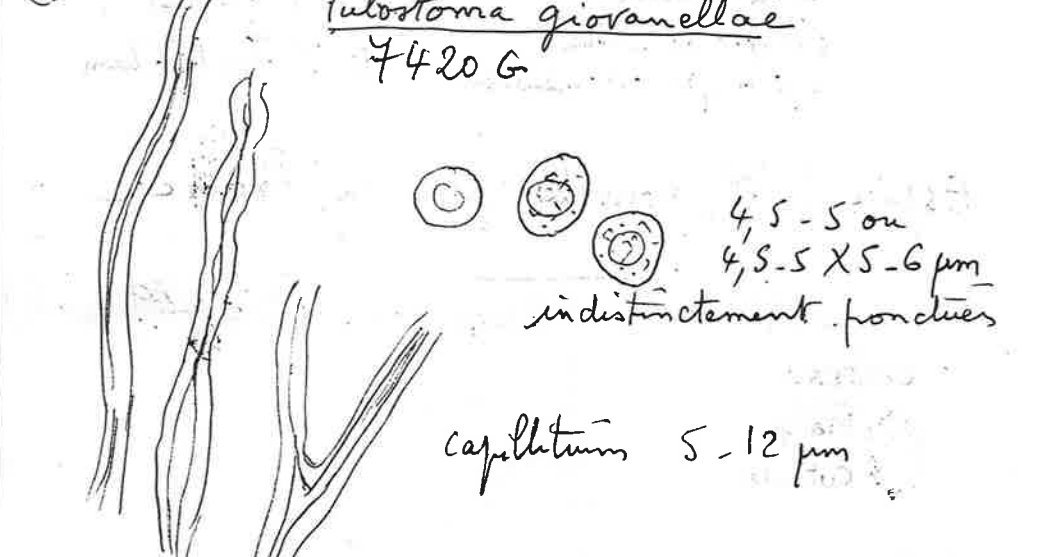 Tulostoma giovanellae
7420 G
4,5-5 ou
4,5-5 X 5-6 µm
indistinctement ponctuées
capillitium 5-12 µm